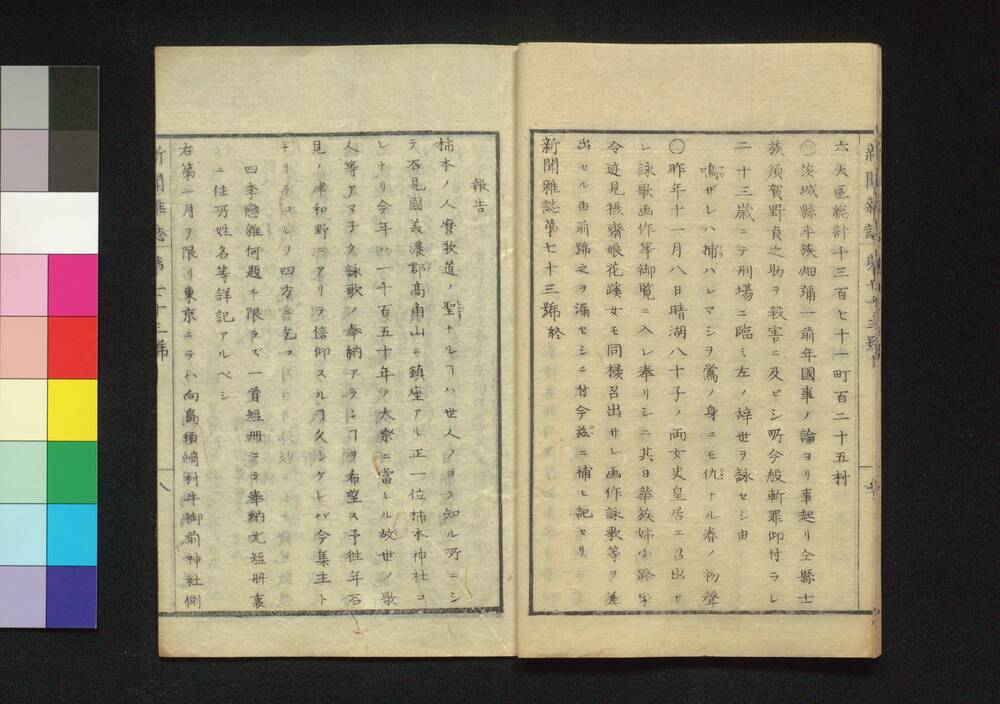 六大區総計千三百七十一町百二十五村
〇茨城縣平族畑彌一前年國事ノ論ヨリ事起リ仝縣士
族須賀野貞之助ヲ殺害ニ及ビシ所今般斬罪仰付ラレ
二十三歳ニテ刑場ニ臨ミ左ノ辞世ヲ詠セシ由
鳴ザレハ捕ハレマシヲ鶯ノ身ニモ仇ナル春ノ初聲
〇昨年十一月八日晴湖八十子ノ両女史皇居エ召出サ
レ詠歌画作等御覧ニ入レ奉リシニ其日華族姉小路家
今迹見摂齋娘花蹊女モ同様召出サレ画作詠歌等ヲ差
出セル由前號之ヲ漏セシニ付今茲ニ補ヒ記セリ
新聞雑誌第七十三號終
報告
柿本ノ人麿歌道ノ聖ナルヿハ世人ノヨク知ル所ニシ
テ石見國美濃郡高角山ニ鎮座アル正一位柿本神社コ
レナリ今年ハ一千百五十年ノ大祭ニ當レル故世ノ歌
人等アマ子ク詠歌ノ奉納アランヿヲ希望ス予往年石
見ノ津和野ニアリテ信仰スルヿ久シケレバ今集主ト
ナリテコレヲ四方ニ乞フ
四季戀雑何題ト限ラズ一首短册ニテ奉納尤短册裏
ニ住所姓名等詳記アルベシ
右第一月ヲ限リ東京ニテハ向島須崎村牛御前神社側
新聞雑誌 第七十三號
八